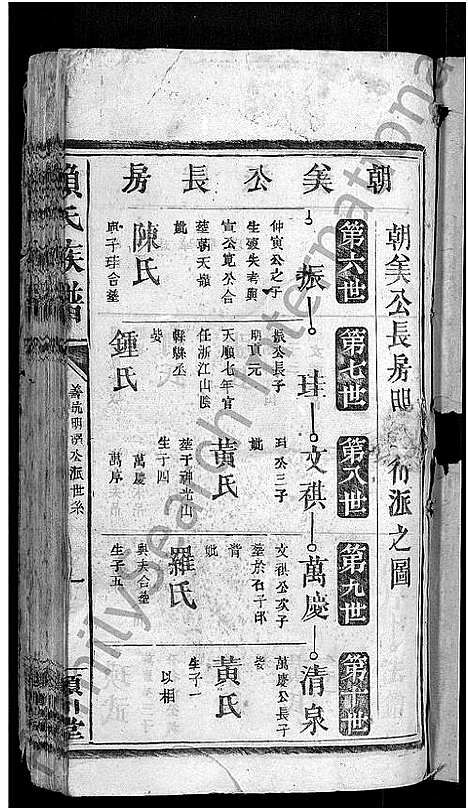 朝矣公長房
朝矣公長房 布派之圖
第六世
振
仲寅公之子
生歿失考與
寅公寬公合
葬朝天嶺
妣
陳氏
與子珪合葬
第七世
珪
振公長子
明貢元
天順七年官
任浙江山陰
縣縣丞
娶
鍾氏
第八世
文祺
珪公三子
妣
黃氏
葬于神光山
生子四
萬慶
萬庠
第九世
萬慶
文祺公次子
葬於石子邱
妣
羅氏
與夫合葬
生子五
第十世
清泉
萬慶公長子
娶
黃氏
生子一
以相
賴氏族譜
公派世系
潁川堂
FamilySearch International